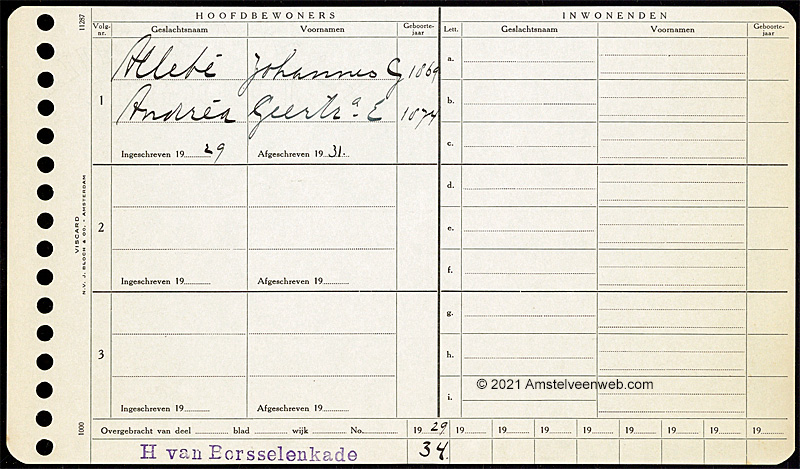 HOOFDBEWONERS
INWONENDEN
11287
Volg-nr. Geslachtsnaam Voornamen Geboorte-jaar
Lett. Geslachtsnaam Voornamen Geboorte-jaar
1
Allebé Johannes G 1869
Andréa Geertrᵃ. E 1874
Ingeschreven 1929 Afgeschreven 1931.
2
Ingeschreven 19 Afgeschreven 19
3
Ingeschreven 19 Afgeschreven 19
a.
b.
c.
d.
e.
f.
g.
h.
i.
VISCARD
N.V. J. BLOCH & CO. - AMSTERDAM
1000
© 2021 Amstelveenweb.com
Overgebracht van deel blad wijk No.
1929 19 19 19 19 19 19 19 19
H van Borsselenkade
34.